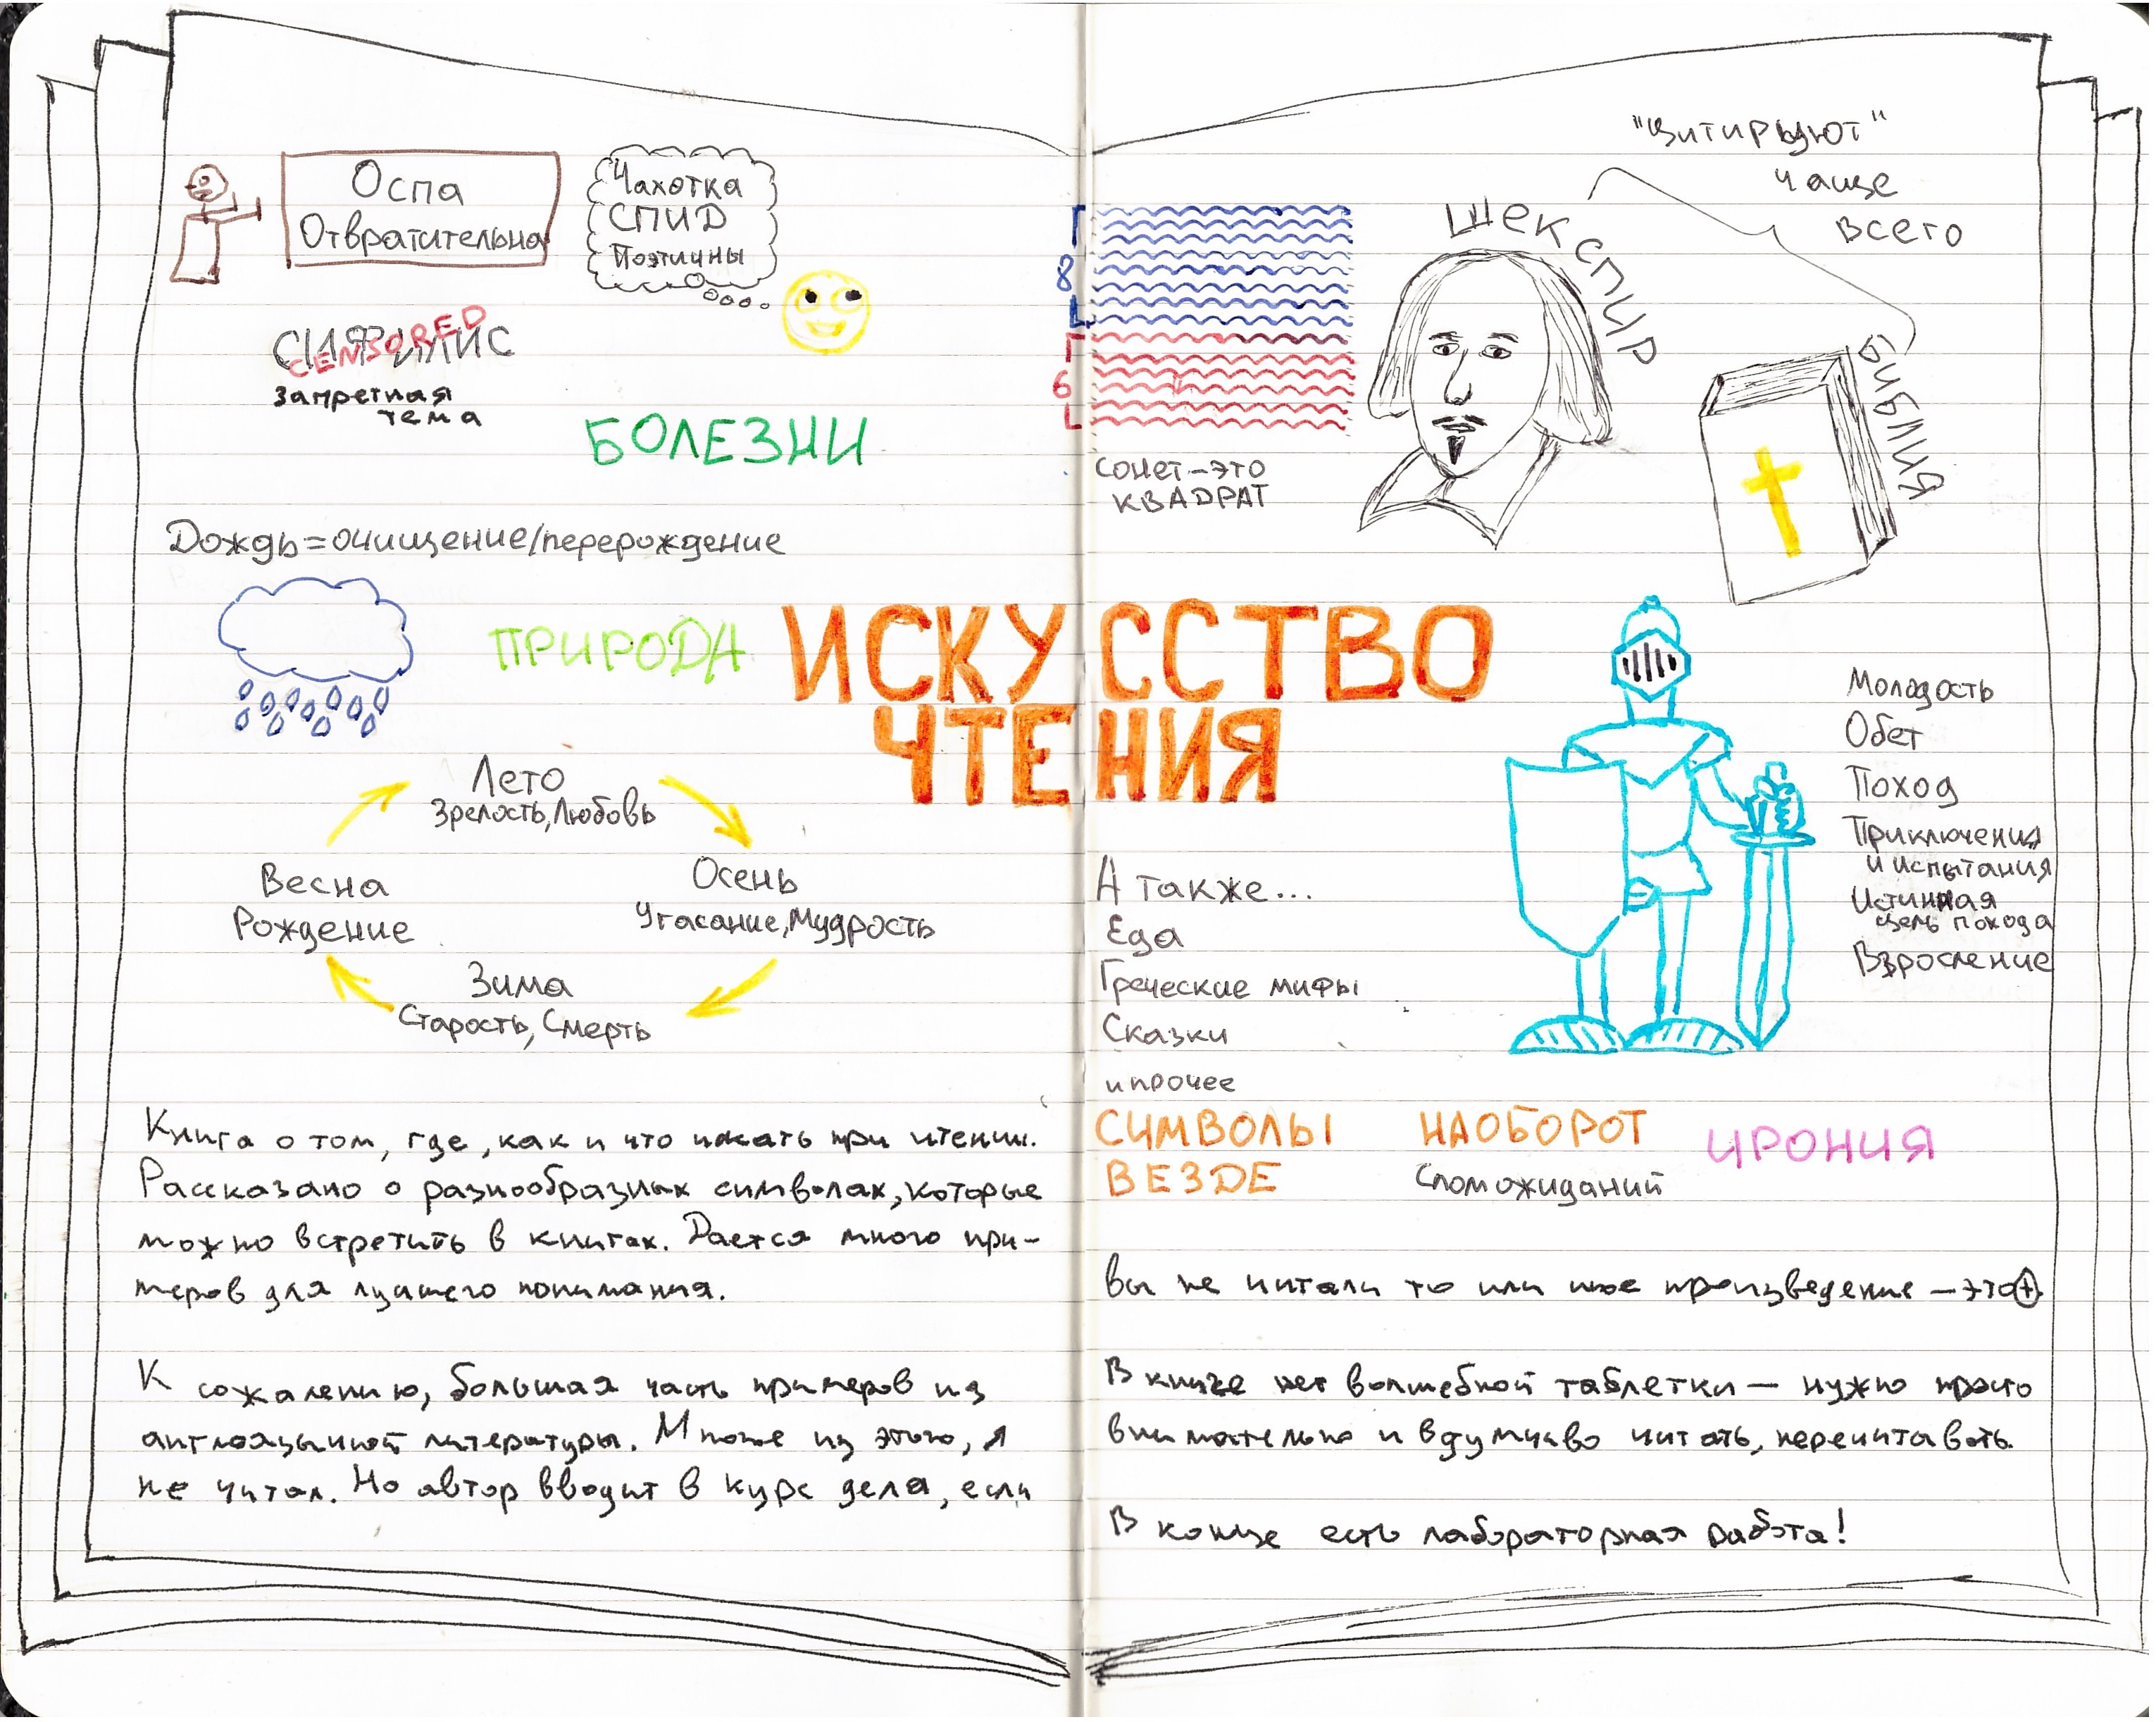 Оспа
Отвратительна
Чахотка
СПИД
Поэтичны
СИФИЛИС
CENSORED
Запретная
тема
БОЛЕЗНИ
Дождь=очищение/перерождение
ПРИРОДА
Лето
Зрелость, Любовь
Весна
Рождение
Осень
Угасание, Мудрость
Зима
Старость, Смерть
Книга о том, где, как и что искать при чтении.
Рассказано о разнообразных символах, которые
можно встретить в книгах. Дается много при-
меров для лучшего понимания.
К сожалению, большая часть примеров из
англоязычной литературы. Многое из этого, я
не читал. Но автор вводит в курс дела, если
ИСКУССТВО
ЧТЕНИЯ
8
6
сонет-это
КВАДРАТ
"Цитируют"
чаще
всего
ШЕКСПИР
БИБЛИЯ
Молодость
Обет
Поход
Приключения
и испытания
Истинная
цель похода
Взросление
А также...
Еда
Греческие мифы
Сказки
и прочее
СИМВОЛЫ
ВЕЗДЕ
НАОБОРОТ
Слом ожиданий
ИРОНИЯ
вы не читали то или иное произведение - это +
В книге нет волшебной таблетки - нужно просто
внимательно и вдумчиво читать, перечитывать.
В конце есть лабораторная работа!